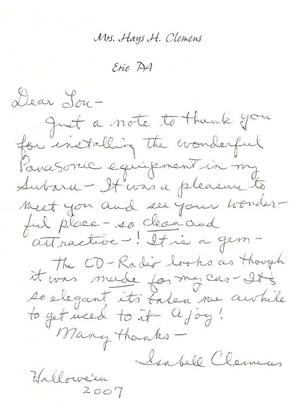 Mrs. Hays H. Clemens
Erie PA
Dear Lou-
Just a note to thank you
for installing the wonderful
Panasonic equipment in my
Subaru - It was a pleasure to
meet you and see your wonder-
ful place - so clean and
attractive - ! It is a gem -
The CD-Radio looks as though
it was made for my car - It's
so elegant, it's taken me awhile
to get used to it - A joy!
Many thanks -
Isabell Clemens
Hallowe'en
2007